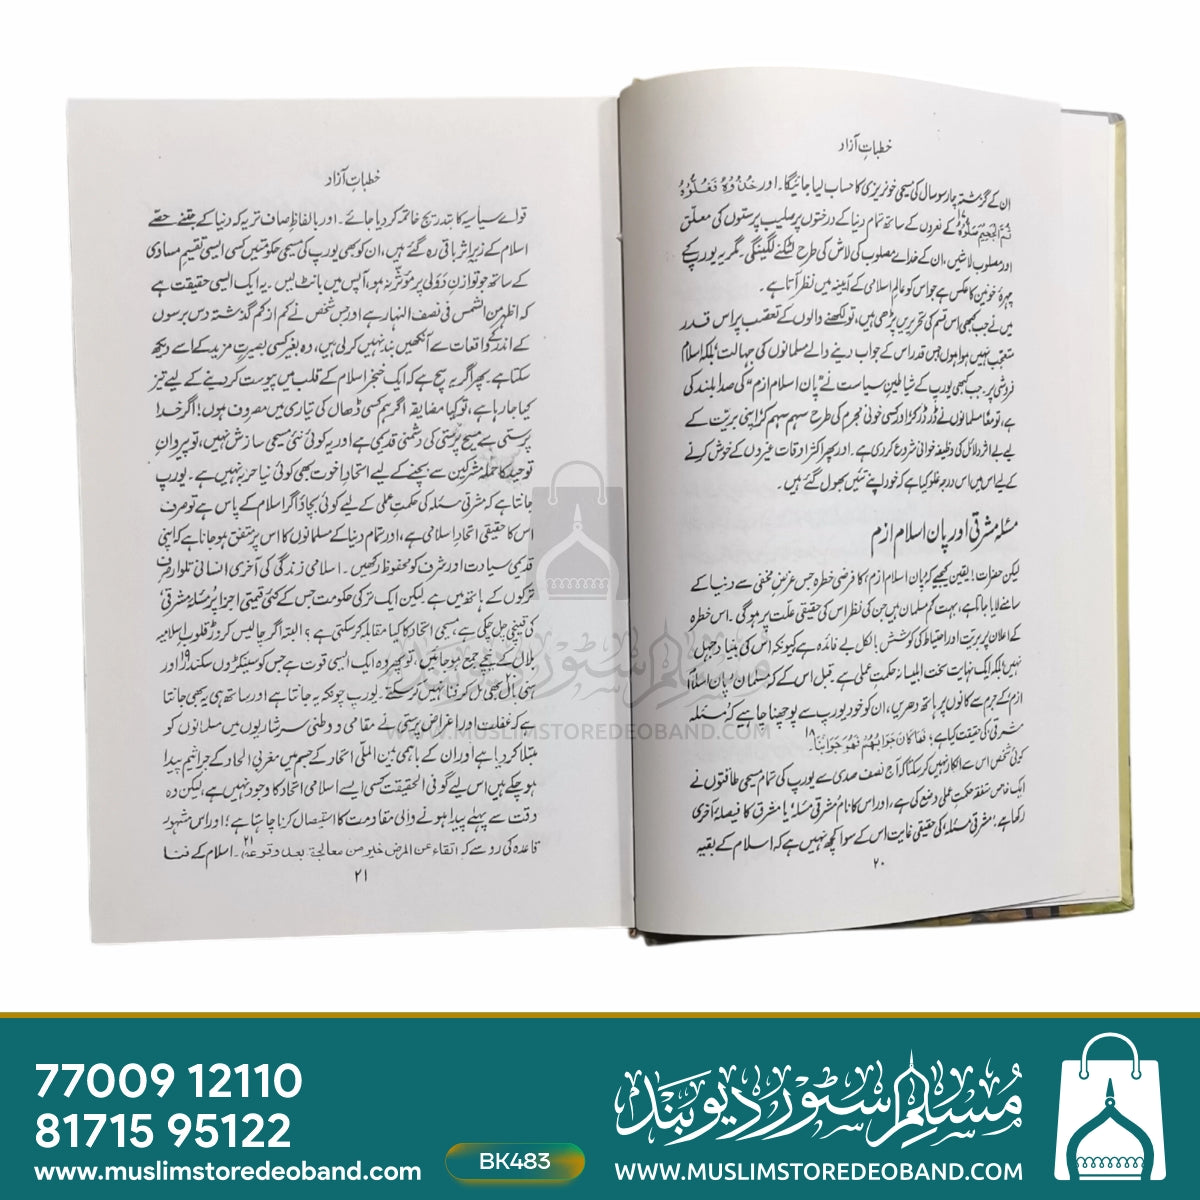 خطباتِ آزاد
ان کے گزشتہ چار سو سال کی مسیحی خونریزی کا حساب لیا جائیگا۔ اور خُذُوهُ فَغُلُّوهُ
ثُمَّ الْجَحِيْمَ صَلُّوْهُ کے نعروں کے ساتھ تمام دنیا کے درختوں پر صلیب پرستوں کی معلق
اور مصلوب لاشیں، ان کے خدائے مصلوب کی لاش کی طرح لٹکنے لگیں گی۔ مگر یہ یورپ کے
چہرۂ خونیں کا عکس ہے جو اس کو عالم اسلامی کے آئینہ میں نظر آتا ہے۔
میں نے جب کبھی اس قسم کی تحریریں پڑھی ہیں، تو لکھنے والوں کے تعصب پر اس قدر
متعجب نہیں ہوا ہوں جس قدر اس کے جواب دینے والے مسلمانوں کی جہالت بلکہ اسلام
فروشی پر۔ جب کبھی یورپ کے شیاطین سیاست نے "پان اسلام ازم" کی صدا بلند کی
ہے، تو معاً مسلمانوں نے ڈر ڈر کر اور کسی خونی مجرم کی طرح سہم سہم کر اپنی بریّت کے
لیے بے اثر دلائل کی وظیفہ خوانی شروع کر دی ہے۔ اور پھر اکثر اوقات غیروں کے خوش کرنے
کے لیے اس میں اس درجہ غلو کیا ہے کہ خود اپنے تئیں بھول گئے ہیں۔
مسئلہ مشرقی اور پان اسلام ازم
لیکن حضرات! یقین کیجیے کہ پان اسلام ازم، کا فرضی خطرہ جس غرض مخفی سے دنیا کے
سامنے لایا جاتا ہے، بہت کم مسلمان ہیں جن کی نظر اس کی حقیقی علّت پر ہو گی۔ اس خطرہ
کے اعلان پر بریّت اور احتیاط کی کوشش بالکل بے فائدہ ہے کیونکہ اس کی بنیاد جہل
نہیں بلکہ ایک نہایت سخت ابلیسانہ حکمت عملی ہے۔ قبل اس کے کہ مسلمان پان اسلام
ازم کے جرم سے کانوں پر ہاتھ دھریں، ان کو خود یورپ سے پوچھنا چاہیے کہ مسئلہ
مشرقی کی حقیقت کیا ہے؛ فَمَا كَانَ جَوَابُهُمْ فَهُوَ جَوَابُنَا۔
کوئی شخص اس سے انکار نہیں کر سکتا کہ آج نصف صدی سے یورپ کی تمام مسیحی طاقتوں نے
ایک خاص متفقہ حکمت عملی وضع کی ہے، اور اس کا نام مشرقی مسئلہ یا مشرق کا فیصلہ آخری
رکھا ہے؛ مشرقی مسئلہ کی حقیقی غایت اس کے سوا کچھ نہیں ہے کہ اسلام کے بقیہ
۲۰
خطباتِ آزاد
قوائے سیاسیہ کا بتدریج خاتمہ کر دیا جائے۔ اور بالفاظ صاف تر یہ کہ دنیا کے جتنے حصّے
اسلام کے زیر اثر باقی رہ گئے ہیں، ان کو بھی یورپ کی مسیحی حکومتیں کسی ایسی تقسیم مساوی
کے ساتھ جو توازنِ دُوَلی پر مؤثر نہ ہو، آپس میں بانٹ لیں۔ یہ ایک ایسی حقیقت ہے
کہ اظہر من الشمس فی نصف النہار ہے اور جس شخص نے کم از کم گذشتہ دس برسوں
کے اندر کے واقعات سے آنکھیں بند نہیں کر لی ہیں، وہ بغیر کسی بصیرتِ مزید کے اسے دیکھ
سکتا ہے۔ پھر اگر یہ سچ ہے کہ ایک خنجر اسلام کے قلب میں پیوست کر دینے کے لیے تیز
کیا جا رہا ہے، تو کیا مضایقہ اگر ہم کسی ڈھال کی تیاری میں مصروف ہوں! اگر خدا
پرستی سے مسیح پرستی کی دشمنی قدیمی ہے اور یہ کوئی نئی مسیحی سازش نہیں، تو پیروانِ
توحید کا حملہ مشرکین سے بچنے کے لیے اتحادِ اخوت بھی کوئی نیا حربہ نہیں ہے۔ یورپ
جانتا ہے کہ مشرقی مسئلہ کی حکمتِ عملی کے لیے کوئی بچاؤ اگر اسلام کے پاس ہے تو صرف
اس کا حقیقی اتحادِ اسلامی ہے، اور تمام دنیا کے مسلمانوں کا اس پر متفق ہو جانا ہے کہ اپنی
قدیمی سیادت اور شرف کو محفوظ رکھیں۔ اسلامی زندگی کی آخری انسانی تلوار صرف
ترکوں کے ہاتھ میں ہے۔ لیکن ایک ترکی حکومت جس کے کئی قیمتی اجزا پر مسئلہ مشرقی
کی قینچی چل چکی ہے، مسیحی اتحاد کا کیا مقابلہ کر سکتی ہے؟ البتہ اگر چالیس کروڑ قلوب اسلامیہ
ہلال کے نیچے جمع ہو جائیں، تو پھر وہ ایک ایسی قوت ہے جس کو سینکڑوں سکندر اور
ہنی بال بھی مل کر فنا نہیں کر سکتے۔ یورپ چونکہ یہ جانتا ہے اور ساتھ ہی یہ بھی جانتا
ہے کہ غفلت اور اغراض پرستی نے مقامی و وطنی سرشاریوں میں مسلمانوں کو
مبتلا کر دیا ہے اور ان کے باہمی بین الملّی اتحاد کے جسم میں مغربی الحاد کے جراثیم پیدا
ہو چکے ہیں اس لیے گو فی الحقیقت کسی ایسے اسلامی اتحاد کا وجود نہیں ہے، لیکن وہ
وقت سے پہلے پیدا ہونے والی مقاومت کا استیصال کرنا چاہتا ہے؛ اور اس مشہور
قاعدہ کی رو سے کہ اتقاء عن المرض خير من معالجة بعد وقوعه۔ اسلام کے فنا
۲۱
WWW.MUSLIMSTOREDEOBAND.COM
77009 12110
81715 95122
www.muslimstoredeoband.com
BK483
مسلم سٹور دیوبند
WWW.MUSLIMSTOREDEOBAND.COM